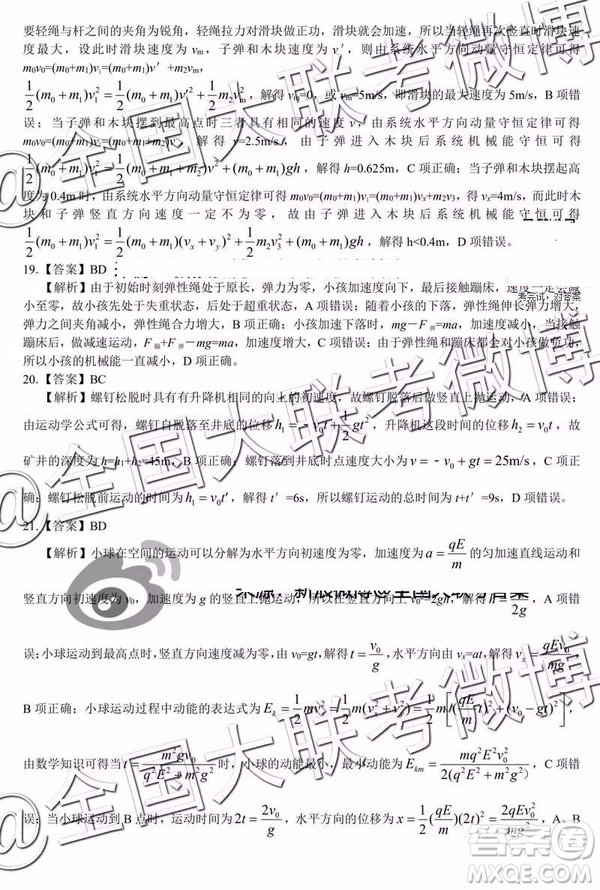 要轻绳与杆之间的夹角为锐角,轻绳拉力对滑块做正功,滑块就会加速,所以当轻绳再次竖直时滑块速
度最大,设此时滑块速度为 vm,子弹和木块速度为 v′,则由系统水平方向动量守恒定律可得
m₀v₀=(m₀+m₁)v₁=(m₀+m₁)v′+m₂vm,
1/2(m₀+m₁)v₁²=1/2(m₀+m₁)v′²+1/2m₂vm²,解得 vm=0,或 vm=5m/s,即滑块的最大速度为 5m/s,B 项错
误;当子弹和木块摆到最高点时三者具有相同的水平速度,由系统水平方向动量守恒定律可得
解得 v=2.5m/s,由子弹进入木块后系统机械能守恒可得
1/2(m₀+m₁)v₁²=1/2(m₀+m₁+m₂)v²+(m₀+m₁)gh,解得 h=0.625m,C 项正确;当子弹和木块摆起高
度为 0.4m 时,由系统水平方向动量守恒定律可得 m₀v₀=(m₀+m₁)v₁=(m₀+m₁)vx+m₂v₃,得 vx=4m/s,而此时木
块和子弹竖直方向速度一定不为零,故由子弹进入木块后系统机械能守恒可得
1/2(m₀+m₁)v₁²=1/2(m₀+m₁)(vx+vy)²+1/2m₂v₃²+(m₀+m₁)gh,解得 h<0.4m,D 项错误。
19.【答案】BD
【解析】由于初始时刻弹性绳处于原长,弹力为零,小孩加速度方向向下,最后接触蹦床,速度一定减
小至零,故小孩先处于失重状态,后处于超重状态,A 项错误;随着小孩的下落,弹性绳伸长弹力增大,
弹力之间夹角减小,弹性绳合力增大,B 项正确;小孩加速下落时,mg−F弹=ma,加速度减小,当接触
蹦床后,做减速运动,F蹦+F弹−mg=ma,加速度增大,C 项错误;弹性绳和蹦床都会对小孩做负功,
所以小孩的机械能一直减小,D 项正确。
20.【答案】BC
【解析】螺钉松脱时具有有升降机相同的向上的初速度,故螺钉脱落后做竖直上抛运动,A 项错误;
由运动学公式可得,螺钉自脱落至井底的位移 h₁=−v₀t+1/2gt²,升降机这段时间的位移 h₂=v₀t,故
矿井的深度为 h=h₁+h₂=45m,B 项正确;螺钉落到井底时点速度大小为 v=−v₀+gt=25m/s,C 项正
确;螺钉松脱前运动的时间为 h₁=v₀t′,解得 t′=6s,所以螺钉运动的总时间为 t+t′=9s,D 项错误。
21.【答案】BD
【解析】小球在空间的运动可以分解为水平方向初速度为零,加速度为 a=qE/m 的匀加速直线运动和
竖直方向初速度为 v₀,加速度为 g 的竖直上抛运动,所以在竖直方向上 v₀²=2gh,解得 h=v₀²/2g,A 项错
误;小球运动到最高点时,竖直方向速度减为零,由 v₀=gt,解得 t=v₀/g,水平方向由 vx=at,解得 vx=qEv₀/mg,
B 项正确;小球运动过程中动能的表达式为 Ek=1/2mv²=1/2m(vx²+vy²)=1/2m[(qE/m t)²+(v₀−gt)²],
由数学知识可得当 t=m²gv₀/(q²E²+m²g²) 时,小球的动能最小,最小动能为 Ekm=mq²E²v₀²/2(q²E²+m²g²),C 项错
误;当小球运动到 B 点时,运动时间为 2t=2v₀/g,水平方向的位移为 x=1/2(qE/m)(2t)²=2qEv₀²/mg²,A、B
@全国大联考微博
答案圈
MXQE.COM